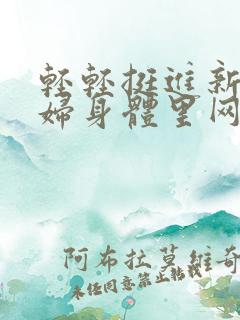 輕輕挺進新
婦身體里网
阿布拉莫維奇
未经同意禁止转载